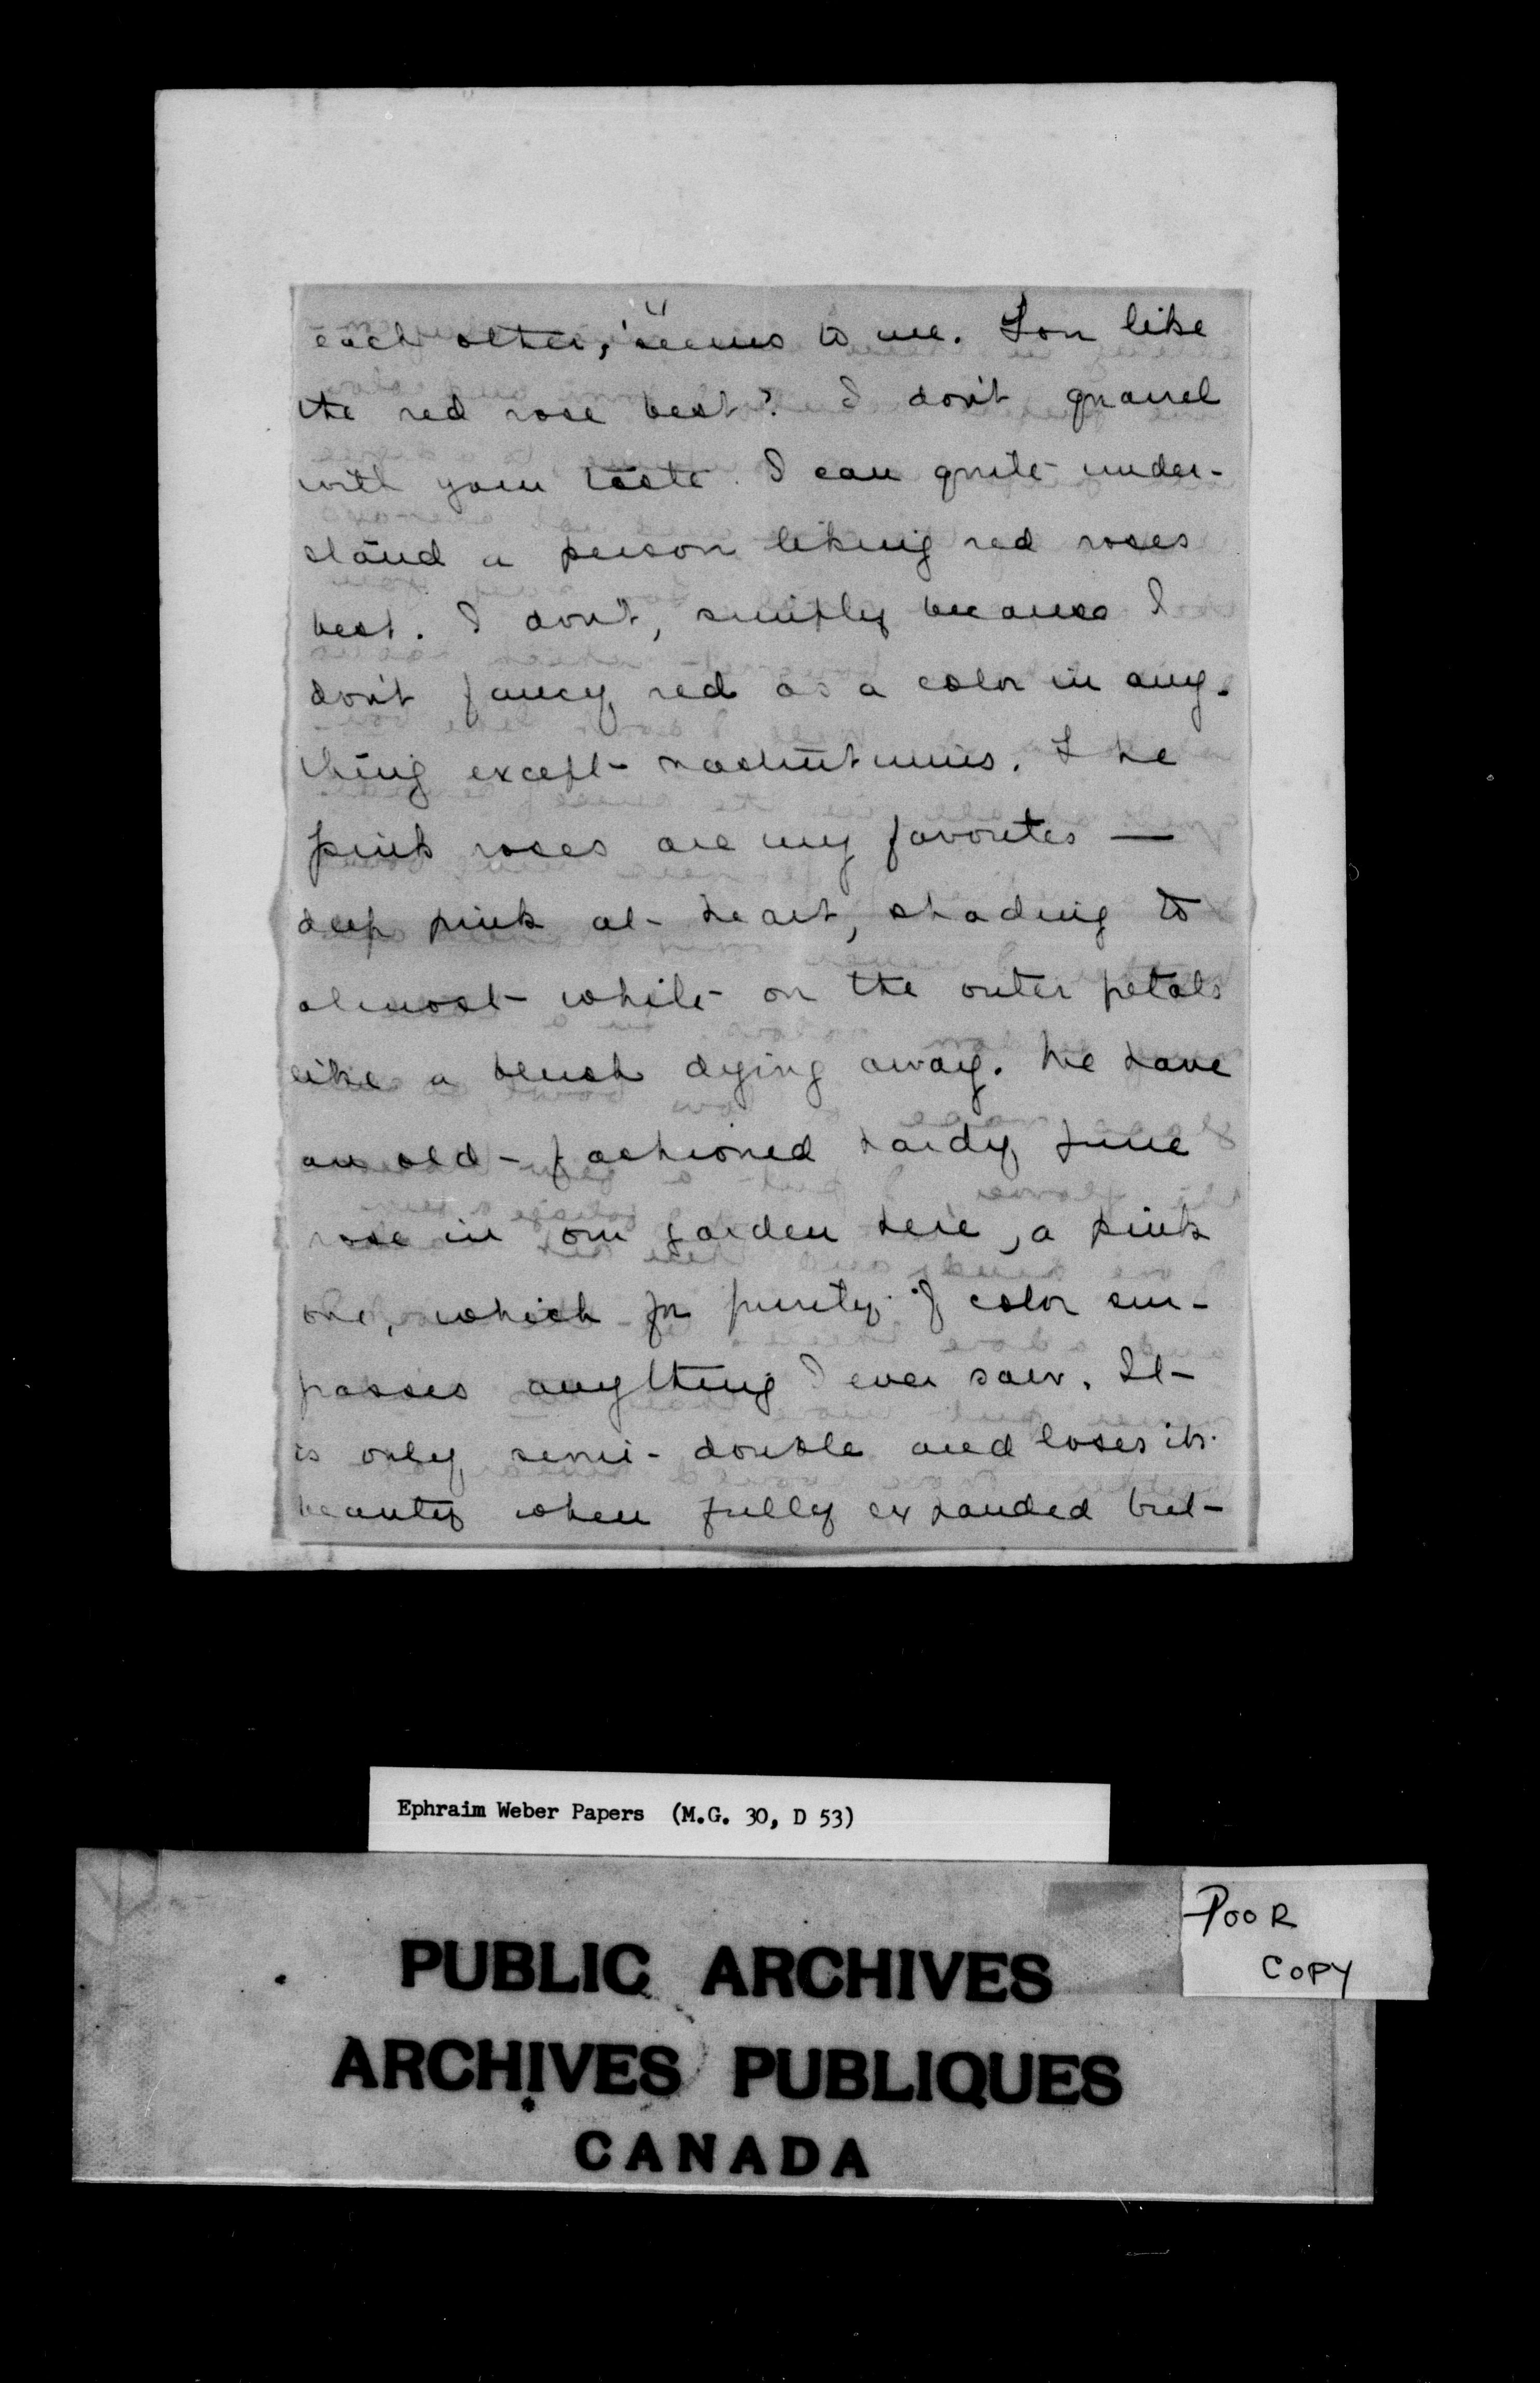 each other, 'seems to me. You like
the red rose best? I don't quarrel
with your taste. I can quite under-
stand a person liking red roses
best. I don't, simply because I
don't fancy red as a color in any-
thing except nasturtiums. The
pink roses are my favorites —
deep pink at heart, shading to
almost white on the outer petals
like a blush dying away. We have
an old-fashioned hardy June
rose in our garden here, a pink
one, which for purity of color sur-
passes anything I ever saw. It
is only semi-double and loses its
beauty when fully expanded but
Ephraim Weber Papers (M.G. 30, D 53)
POOR
COPY
PUBLIC ARCHIVES
ARCHIVES PUBLIQUES
CANADA